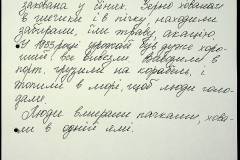 захована у сінях. Зерно ховалися
в глечики і в пічку, находили
забирали, їли траву, акацію.
У 1933 році урожай був дуже хоро-
ший, все вивезли. Вивозили в
порт, грузили на корабель, і
топили в морі, щоб люди голо-
дали.
Люди вмирали пачками, хова-
ли в одній ямі.